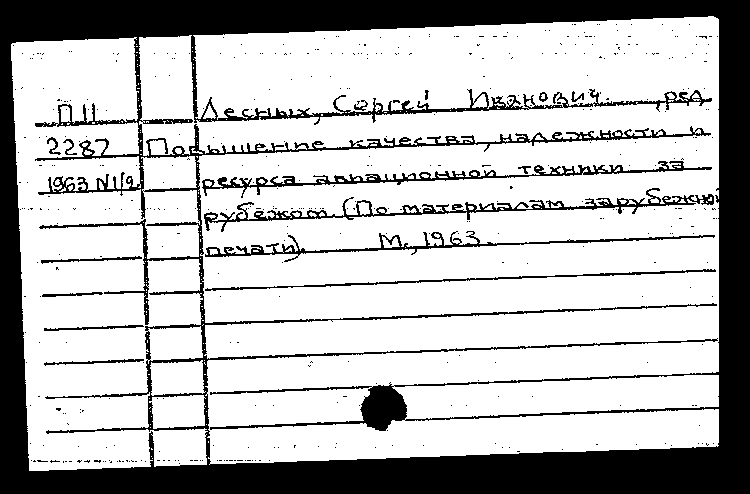 П11 Лесных, Сергей Иванович, ред
2287 Повышение качества, надежности и
1963 N1/2 ресурса авиационной техники за
рубежом. (По материалам зарубежной
печати). М., 1963.